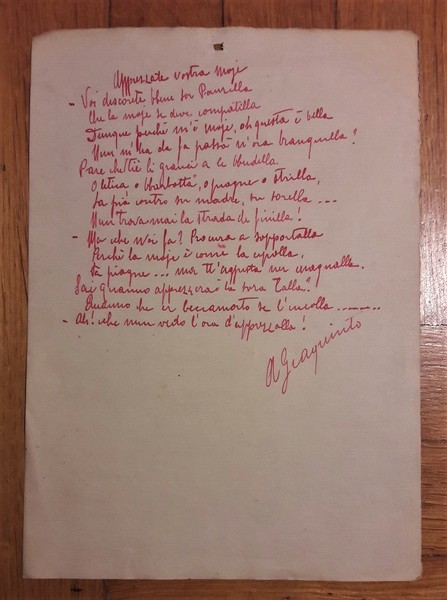 Apprezzate vostra moje
- Voi discorete bene sor Panzella
Che la moje se deve compatilla
Dunque perché m'è moje, oh questa è bella
Nun m'ha da fa passà n'ora tranquilla?
Pare che tiè li granci a le budella
O letica o barbotta, o piagne o strilla,
La pià contro su madre, su sorella ...
Nun trova mai la strada de finilla!
- Ma che vvoi fa? Procura a sopportalla
Perché la moje è come la cipolla,
Fa piagne ... ma tt'ajuta ner magnalla.
Sai quanno apprezzerai la sora Lalla?
Quanno che er beccamorto se l'incolla ..........
- Ah! che nun vedo l'ora d'apprezzalla!
A Giaquinto